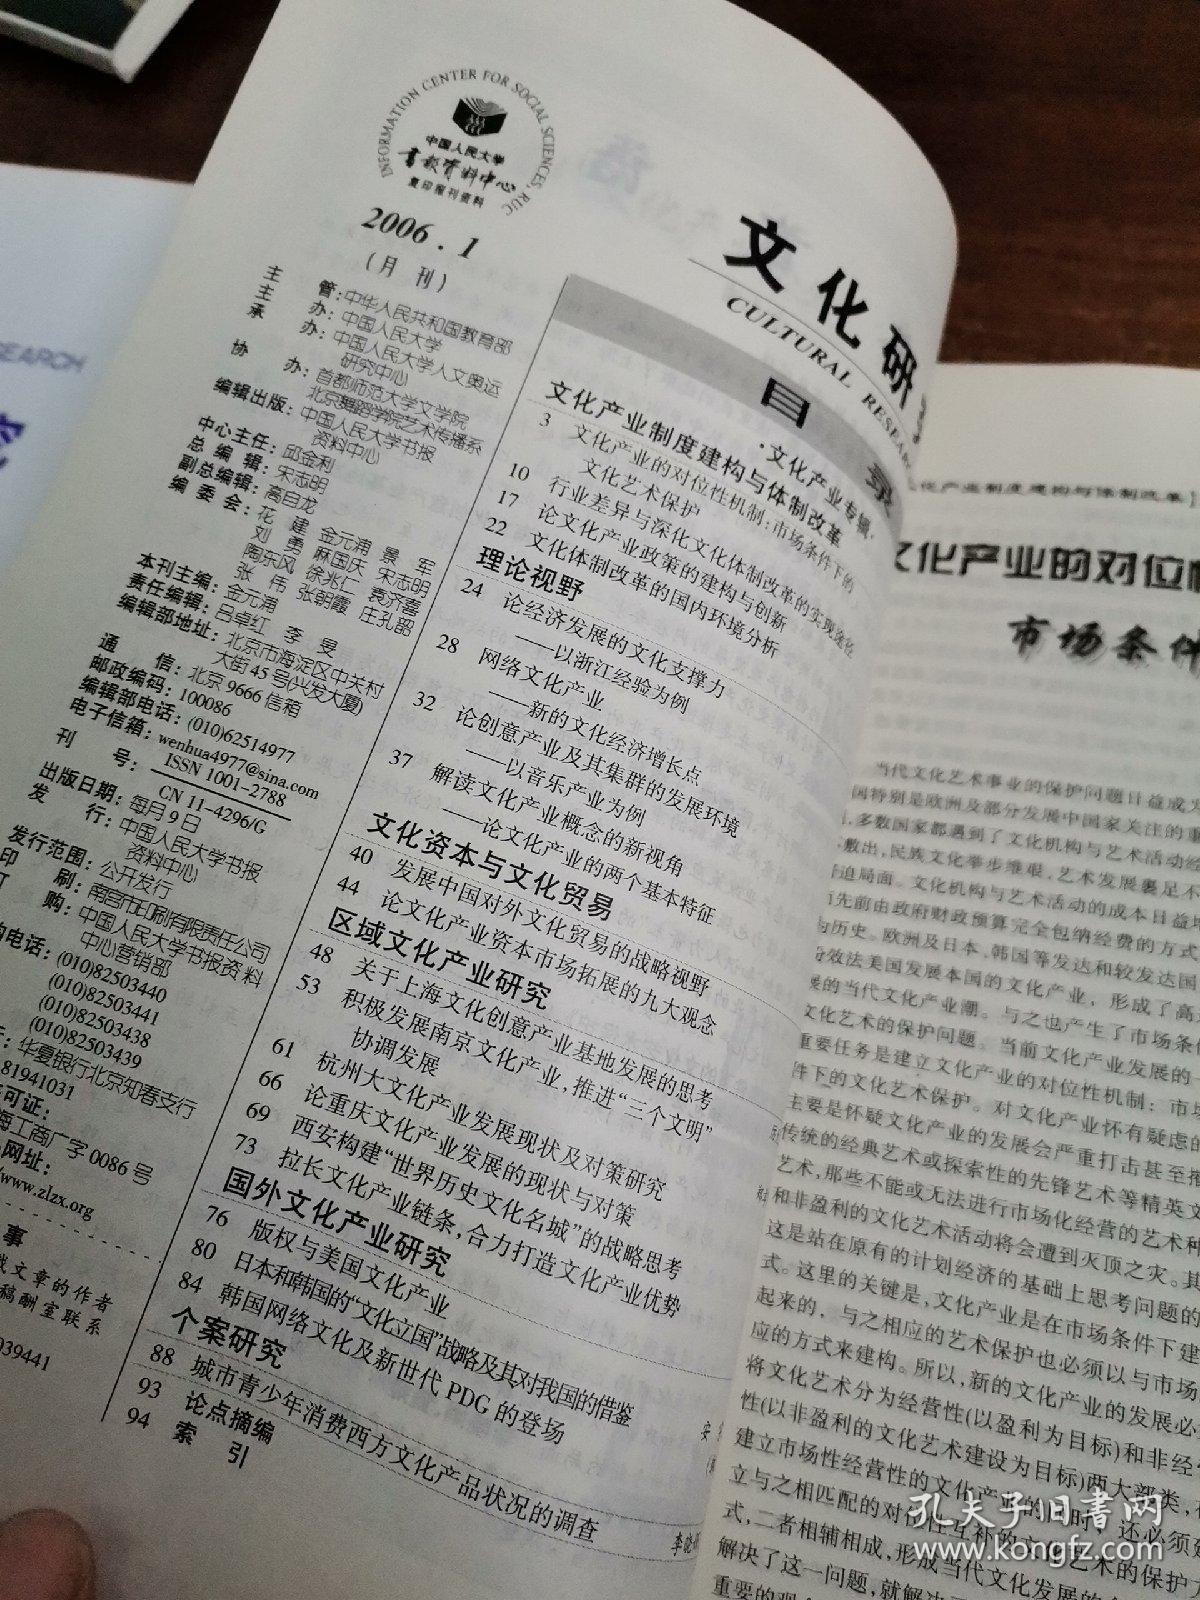 INFORMATION CENTER FOR SOCIAL SCIENCES, RUC
中国人民大学
書报资料中心
复印报刊资料
2006.1
(月 刊)
主 管:中华人民共和国教育部
主 办:中国人民大学
承 办:中国人民大学人文奥运
研究中心
协 办:首都师范大学文学院
北京舞蹈学院艺术传播系
编辑出版:中国人民大学书报
资料中心
中心主任:邱金利
总 编 辑:宋志明
副总编辑:高自龙
编 委 会:花 建 金元浦 景 军
刘 勇 麻国庆 宋志明
陶东风 徐兆仁 袁济喜
张 伟 张朝霞 庄孔韶
本刊主编:金元浦
责任编辑:吕卓红 李 旻
编辑部地址:北京市海淀区中关村
大街45号(兴发大厦)
通 信:北京9666信箱
邮政编码:100086
编辑部电话:(010)62514977
电子信箱:wenhua4977@sina.com
刊 号:ISSN 1001-2788
CN 11-4296/G
出版日期:每月9日
发 行:中国人民大学书报
资料中心
发行范围:公开发行
印 刷:南宫市印刷有限责任公司
订 购:中国人民大学书报资料
中心营销部
购电话:(010)82503440
(010)82503441
(010)82503438
(010)82503439
:华夏银行北京知春支行
81941031
可证:
海工商广字0086号
网址:
www.zlzx.org
事
文章的作者
稿酬室联系
939441
文化研
CULTURAL RESEAR
目 录
·文化产业专辑·
文化产业制度建构与体制改革
3 文化产业的对位性机制:市场条件下的
文化艺术保护
10 行业差异与深化文化体制改革的实现途径
17 论文化产业政策的建构与创新
22 文化体制改革的国内环境分析
理论视野
24 论经济发展的文化支撑力
——以浙江经验为例
28 网络文化产业
——新的文化经济增长点
32 论创意产业及其集群的发展环境
——以音乐产业为例
37 解读文化产业概念的新视角
——论文化产业的两个基本特征
文化资本与文化贸易
40 发展中国对外文化贸易的战略视野
44 论文化产业资本市场拓展的九大观念
区域文化产业研究
48 关于上海文化创意产业基地发展的思考
53 积极发展南京文化产业,推进“三个文明”
协调发展
61 杭州大文化产业发展现状及对策研究
66 论重庆文化产业发展的现状与对策
69 西安构建“世界历史文化名城”的战略思考
73 拉长文化产业链条,合力打造文化产业优势
国外文化产业研究
76 版权与美国文化产业
80 日本和韩国的“文化立国”战略及其对我国的借鉴
84 韩国网络文化及新世代PDG的登场
个案研究
88 城市青少年消费西方文化产品状况的调查
93 论点摘编
94 索 引
化产业制度建构与体制改革】
文化产业的对位
市场条件
当代文化艺术事业的保护问题日益成为
国特别是欧洲及部分发展中国家关注的重
多数国家都遇到了文化机构与艺术活动经
出,民族文化举步维艰,艺术发展裹足不
迫局面。文化机构与艺术活动的成本日益
先前由政府财政预算完全包纳经费的方式
为历史。欧洲及日本、韩国等发达和较发达国
效法美国发展本国的文化产业,形成了高
的当代文化产业潮。与之也产生了市场条
文化艺术的保护问题。当前文化产业发展的
重要任务是建立文化产业的对位性机制:市
件下的文化艺术保护。对文化产业怀有疑虑的
主要是怀疑文化产业的发展会严重打击甚至
传统的经典艺术或探索性的先锋艺术等精英文
艺术,那些不能或无法进行市场化经营的艺术种
和非盈利的文化艺术活动将会遭到灭顶之灾。其
这是站在原有的计划经济的基础上思考问题的
式。这里的关键是,文化产业是在市场条件下建
起来的,与之相应的艺术保护也必须以与市场
应的方式来建构。所以,新的文化产业的发展必
将文化艺术分为经营性(以盈利为目标)和非经
性(以非盈利的文化艺术建设为目标)两大部类,
建立市场性经营性的文化产业的同时,还必须
立与之相匹配的对位性互补的文化艺术的保护
式,二者相辅相成,形成当代文化发展的
解决了这一问题,就解决
重要的
孔夫子旧书网
www.kongfz.com
EARCH